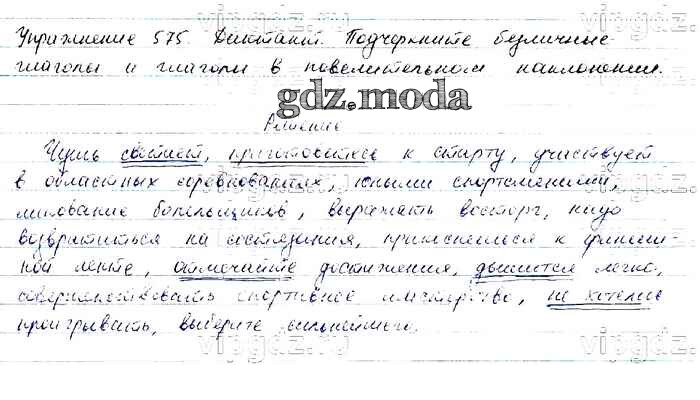 vipgdz.ru
Упражнение 575. Диктант. Подчеркните безличные
глаголы и глаголы в повелительном наклонении.
gdz.moda
Решение
Чуть светает, приготовиться к старту, участвует
в областных соревнованиях, юными спортсменами,
ликование болельщиков, выражать восторг, надо
возвратиться на состязания, к финиш-
ной ленте, отмечайте достижения, дышится легко,
совершенствовать спортивное мастерство, не хотелось
проигрывать, выберите сильнейшего.
vipgdz.ru